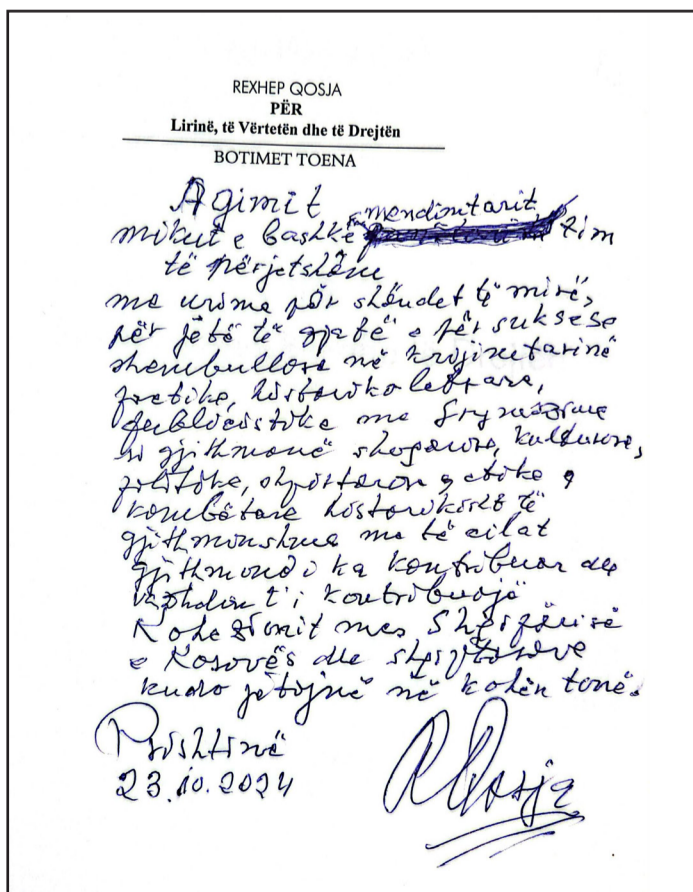 REXHEP QOSJA
PËR
Lirinë, të Vërtetën dhe të Drejtën
BOTIMET TOENA
Agimit
mendimtarit
mikut e bashkë tim
të përjetshëm
me urime për shëndet të mirë,
për jetë të gjatë e për suksese
shembullore në krijimtarinë
poetike, historiko letrare,
publicistike me frymëzime
si gjithmonë shoqërore, kulturore,
politike, shpirtërore, etike e
kombëtare historikisht të
gjithmonshme me të cilat
gjithmonë i ka kontribuar dhe
vazhdon t'i kontribuojë
Kohezionit mes Shqipërisë
e Kosovës dhe shqiptarëve
kudo jetojnë në kohën tonë.
Prishtinë
23.10.2024
RQosja